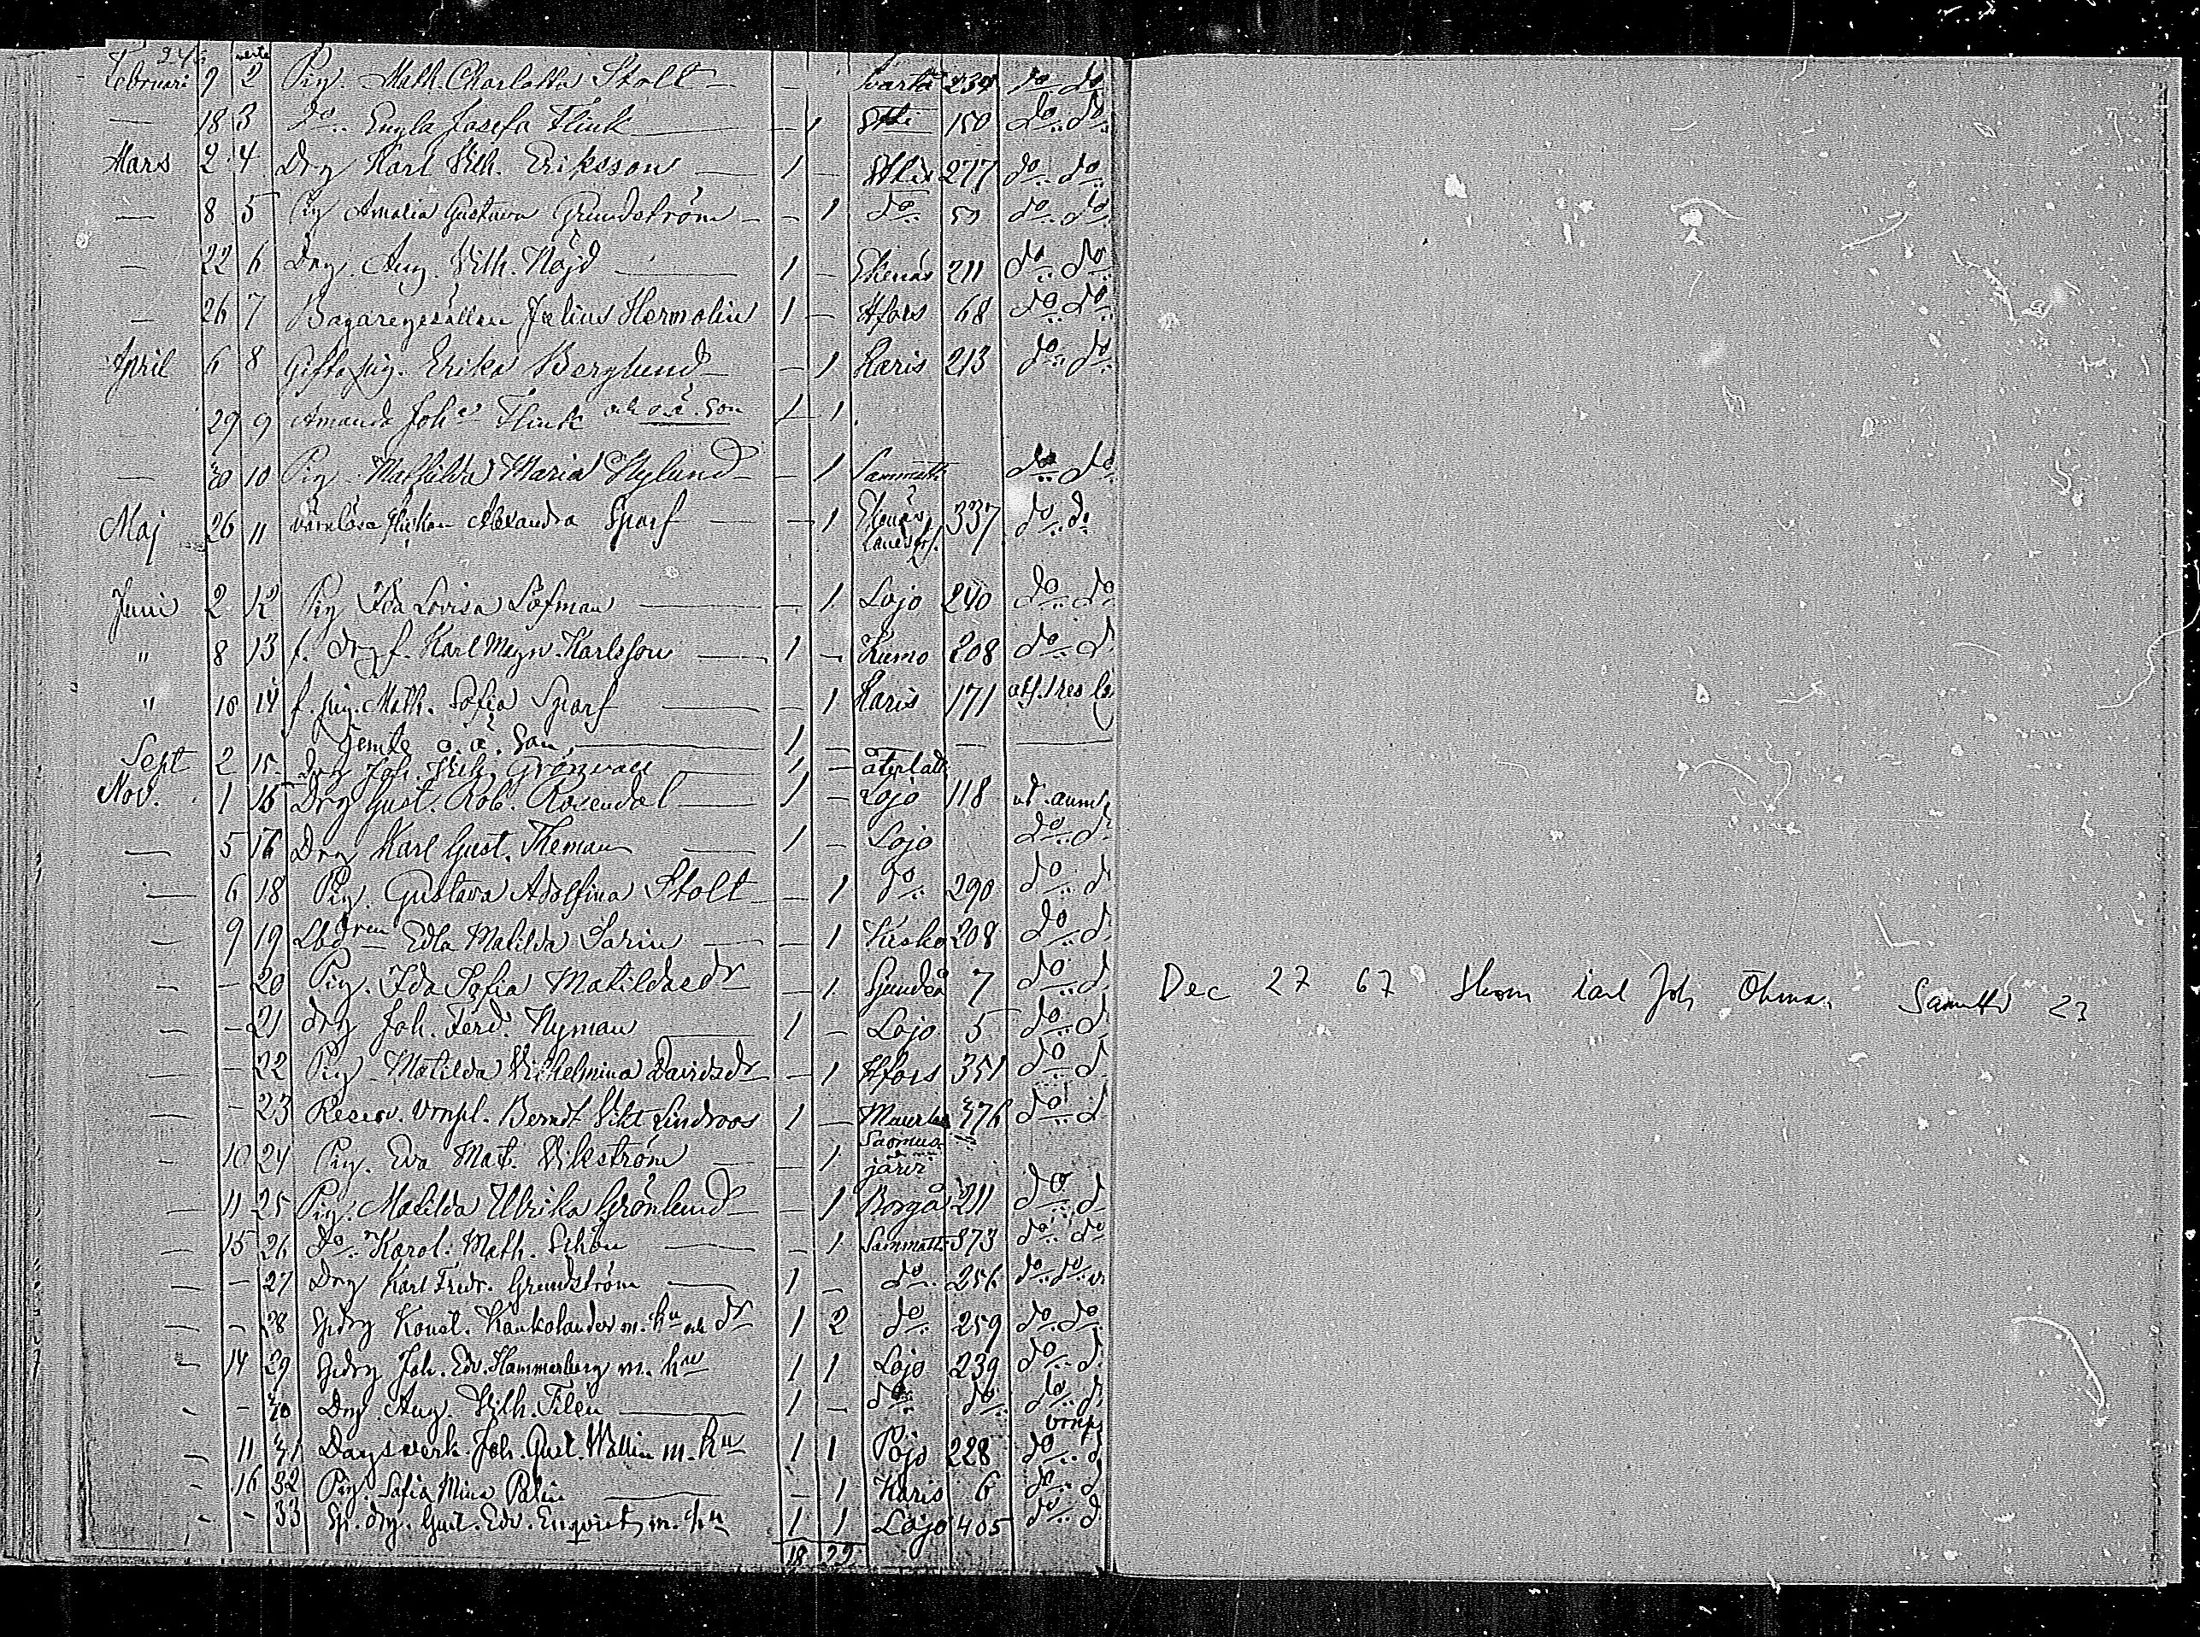 Februari 9 2 Pig. Math. Charlotta Stolt — — Svartå 234 do do
— 18 3 do Engla Josefa Flink — 1 150 do do
Mars 2 4 Drg Karl Vilh. Eriksson — 1 — 277 do do
— 8 5 Pig Amalia Gustava Grundström — — 1 do 50 do do
— 22 6 Drg. Aug. Vilh. Nöjd — 1 — Ekenäs 211 do do
— 26 7 Bagaregesällen Julius Hermolin 1 — Hfors 68 do do
April 6 8 Gifta pig. Erika Berglund — — 1 Karis 213 do do
29 9 Amanda Joh. Flink och o.ä. son 1 1
— 30 10 Pig Mathilda Maria Nylund — — 1 Sammatti do do
Maj 26 11 värnlösa flickan Alexandra Sparf — — 1 Ekenäs 337 do do
landsf.
Juni 2 12 Pig Ida Lovisa Löfman — — 1 Lojo 240 do do
" 8 13 f. drg f. Karl Magn. Karlsson — 1 — Kumo 208 do d
" 10 14 f. pig. Math. Sofia Sparf — 1 Karis 171
Jemte o.ä. son, — 1 — — —
Sept 2 15 Drg Joh. Vilh. Grönvall — 1 —
Nov. 1 16 Drg Gust. Rob. Rosendal — 1 — Lojo 118
— 5 16 Drg Karl Gust. Theman — 1 — Lojo do d
— 6 18 Pig. Gustava Adolfina Stolt — — 1 do 290 do d
— 9 19 Edla Matilda Sarin — — 1 Kisko 208 do d
— — 20 Pig. Ida Sofia Matildasdr — 1 Sjundeå 7 do d
— — 21 drg Joh. Ferd. Nyman — 1 — Lojo 5 do d
— — 22 Pig Matilda Vilhelmina Davidsdr — 1 Hfors 351 do d
— — 23 Reserv. Berndt Vikt. Lindroos 1 — 376 do d
— 10 24 Pig. Eva Mat. Vikström — — 1 järvi
— 11 25 Pig. Matilda Ulrika Grönlund — — 1 Borgå 211 do d
— 15 26 do Karol. Math. Schön — — 1 Sammatti 373 do do
— — 27 Drg Karl Fredr. Grundström — 1 — do 256 do do
— — 28 Spdrg Konst. Kankolander m. hu och dr 1 2 do 259 do do
— 14 29 Spdrg Joh. Edv. Hammarberg m. hu 1 1 Lojo 239 do d
- - 30 Drg. Aug. Vilh. Filén — 1 — do do do d
- 11 31 Dagsverk. Joh. Gust. Wallin m. hu 1 1 Pojo 228 do d
- 16 32 Pig Sofia Mina Palin — — 1 Karis 6 do d
- - 33 Sp. drg. Gust. Edv. Enqvist m. hu 1 1 Lojo 405 do d
18 22
Dec 27 67 Skom Karl Joh Öhman Samtti 23